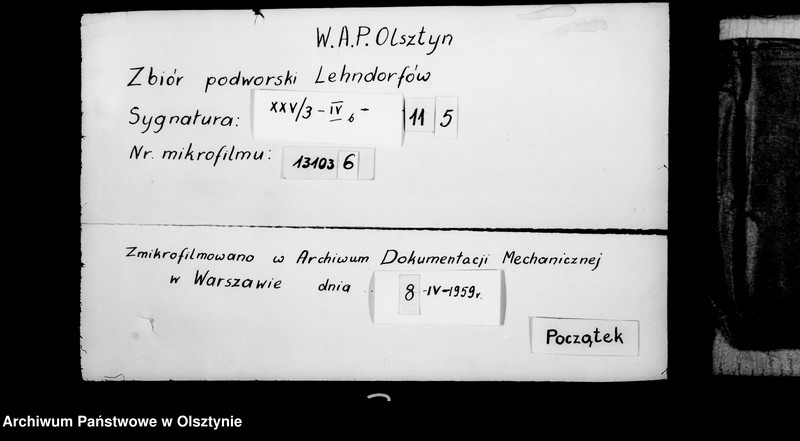 W.A.P. Olsztyn
Zbiór podworski Lehndorfów
Sygnatura: XXV/3 - IV b - 11 5
Nr. mikrofilmu: 13103 6
Zmikrofilmowano w Archiwum Dokumentacji Mechanicznej
w Warszawie dnia 8 -IV-1959r.
Początek
Archiwum Państwowe w Olsztynie